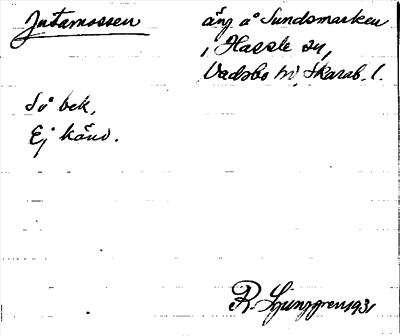 Jutamossen
äng å Sundsmarken
i Hassle sn,
Vadsbo hd, Skarab. l.
Så bek.
Ej känd.
R. Ljunggren 1931